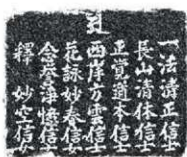 一法清正信士
長山清体信士
正覚道本信士
西岸方雲信士
花詠妙春信女
念誉信女
釋 妙空信女